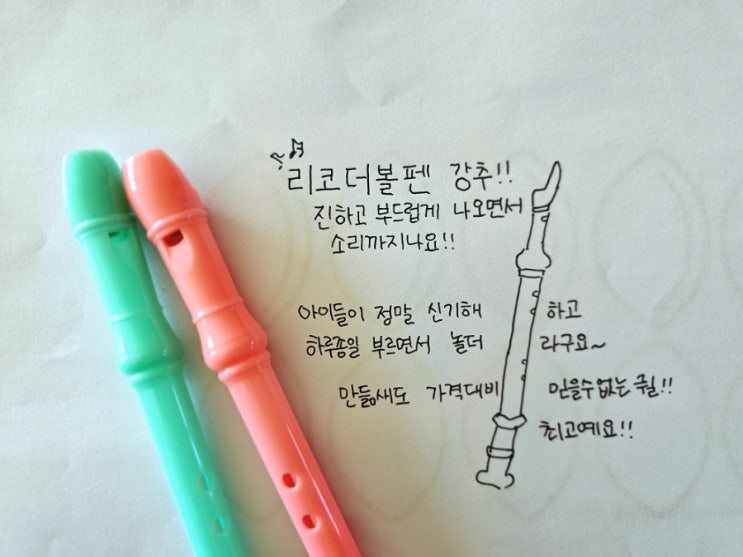 리코더볼펜 강추!!
진하고 부드럽게 나오면서
소리까지나요!!
아이들이 정말 신기해 하고
하루종일 부르면서 놀더 라구요~
만듦새도 가격대비 믿을수없는 퀄!!
최고예요!!